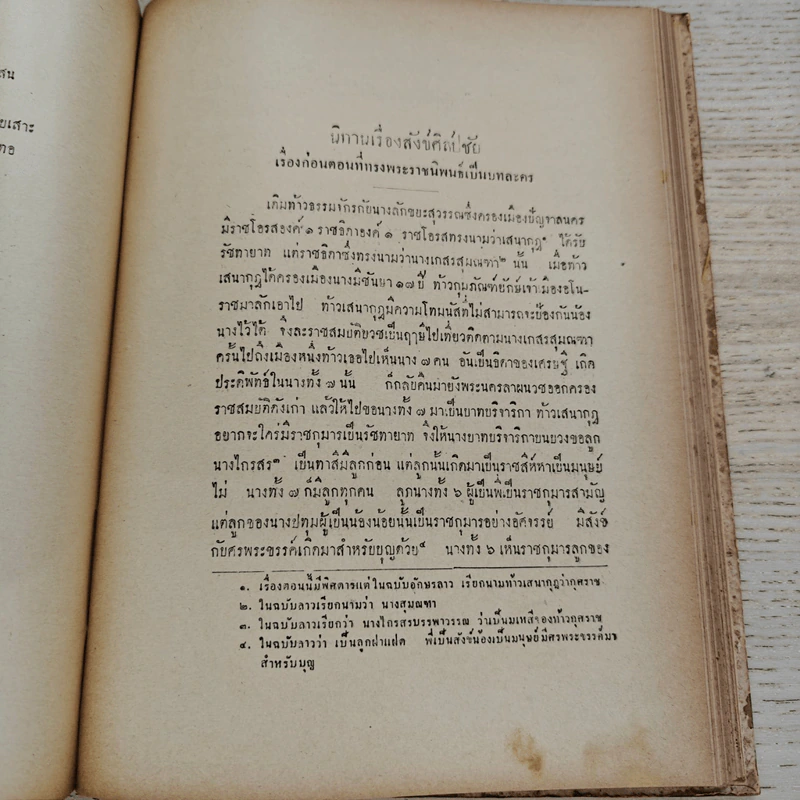 สน
ยเสาะ
ทอ
นิทานเรื่องสังข์ศิลปชัย
เรื่องก่อนตอนที่ทรงพระราชนิพนธ์เป็นบทละคร
เดิมท้าวธรรมจักรกับนางลักขยะสุวรรณซึ่งครองเมืองปัญจาลนคร
มีราชโอรสองค์ ๑ ราชธิดาองค์ ๑ ราชโอรสทรงนามว่าเสนากุฎ๑ ได้รับ
รัชทายาท แต่ราชธิดาซึ่งทรงนามว่านางเกสรสุมณฑา๒ นั้น เมื่อท้าว
เสนากุฎได้ครองเมืองนางมีชันษา ๑๗ ปี ท้าวกุมภัณฑ์ยักษ์เข้าเมืองอโน-
ราชมาลักเอาไป ท้าวเสนากุฎมีความโทมนัสที่ไม่สามารถจะป้องกันน้อง
นางไว้ได้ จึงละราชสมบัติบวชเป็นฤๅษีไปเที่ยวติดตามนางเกสรสุมณฑา
ครั้นไปถึงเมืองหนึ่งท้าวเธอไปเห็นนาง ๗ คน อันเป็นธิดาของเศรษฐี เกิด
ประดิพัทธ์ในนางทั้ง ๗ นั้น ก็กลับคืนมายังพระนครลาผนวชออกครอง
ราชสมบัติดังเก่า แล้วให้ไปขอนางทั้ง ๗ มาเป็นบาทบริจาริกา ท้าวเสนากุฎ
อยากจะใคร่มีราชกุมารเป็นรัชทายาท จึงให้นางบาทบริจาริกาบนบวงขอลูก
นางไกรสร๓ เป็นทาสีมีลูกก่อน แต่ลูกนั้นเกิดมาเป็นราชสีห์หาเป็นมนุษย์
ไม่ นางทั้ง ๗ ก็มีลูกทุกคน ลูกนางทั้ง ๖ ผู้เป็นพี่เป็นราชกุมารสามัญ
แต่ลูกของนางปทุมผู้เป็นน้องน้อยนั้นเป็นราชกุมารอย่างอัศจรรย์ มีสังข์
กับศรพระขรรค์เกิดมาสำหรับบุญด้วย๔ นางทั้ง ๖ เห็นราชกุมารลูกของ
๑. เรื่องตอนนี้มีพิศดารแต่ในฉบับอักษรลาว เรียกนามท้าวเสนากุฎว่ากุศราช
๒. ในฉบับลาวเรียกนามว่า นางสุมณฑา
๓. ในฉบับลาวเรียกว่า นางไกรสรบรรพาวรรณ ว่าเป็นมเหสีของท้าวกุศราช
๔. ในฉบับลาวว่า เป็นลูกฝาแฝด พี่เป็นสังข์น้องเป็นมนุษย์มีศรพระขรรค์มา
สำหรับบุญ